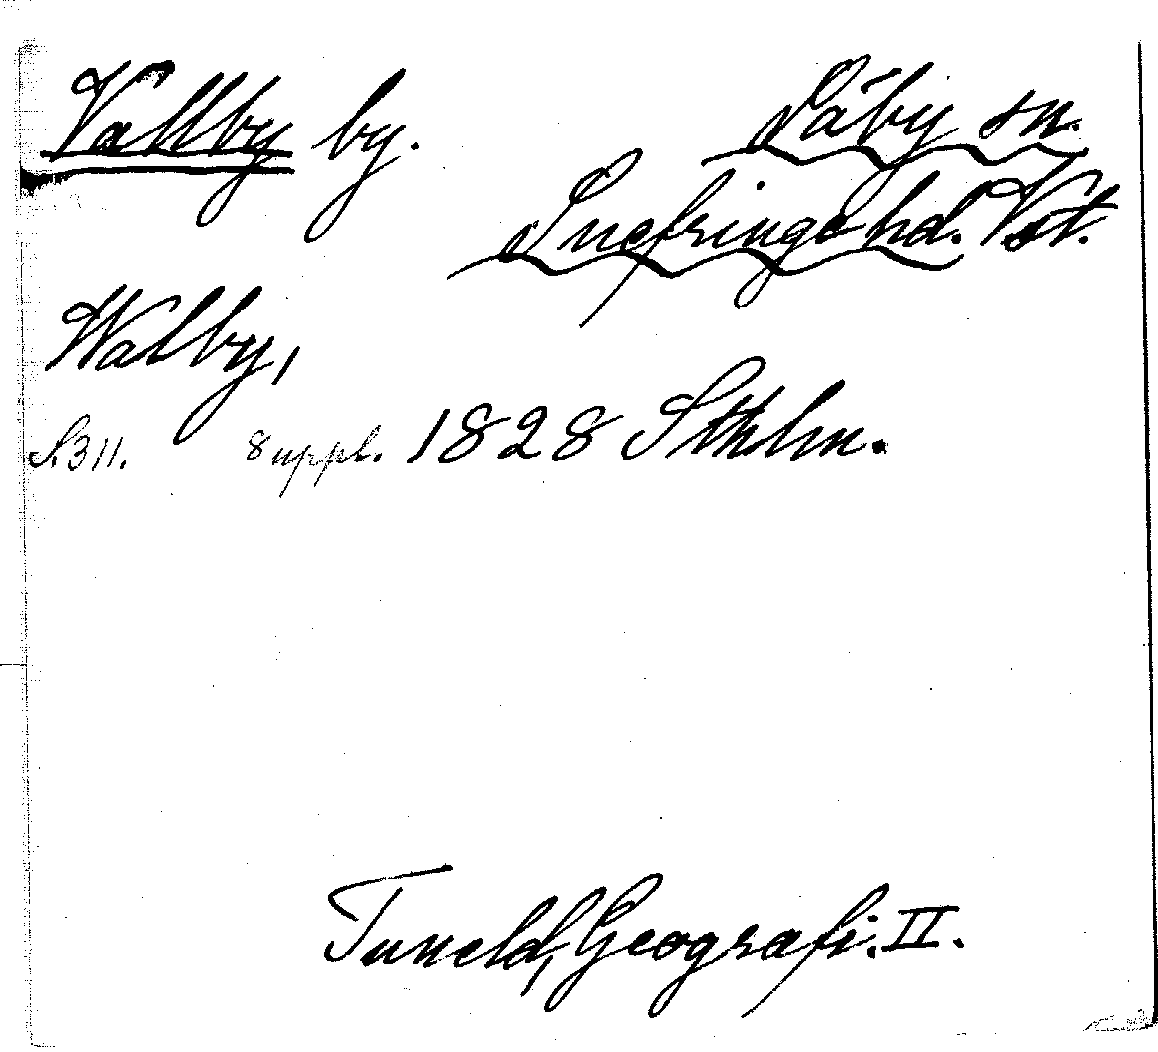 Vallby by. Säby sn.
Snefringe hd. Vstm.
Walby,
S. 311. 8 uppl. 1828 Sthlm.
Tuneld, Geografi. II.